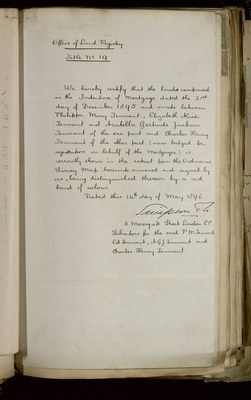 Office of Land Registry
Title No. 19
We hereby certify that the lands comprised
in the Indenture of Mortgage dated the 21st
day of December 1895 and made between
Philippa Mary Tennant, Elizabeth
Tennant and Arabella Gertrude
Tennant of the one part and Charles Henry
Tennant of the other part (now lodged for
registration on behalf of the Mortgagee) is
correctly shown in the extract from the Ordnance
Survey Map hereunto annexed and signed by
us, being distinguished thereon by a red
band of colour
Dated this 14th day of May 1896
6 Moorgate Street London E.C.
Solicitors for the said P M Tennant
Tennant, A G J Tennant and
Charles Henry Tennant